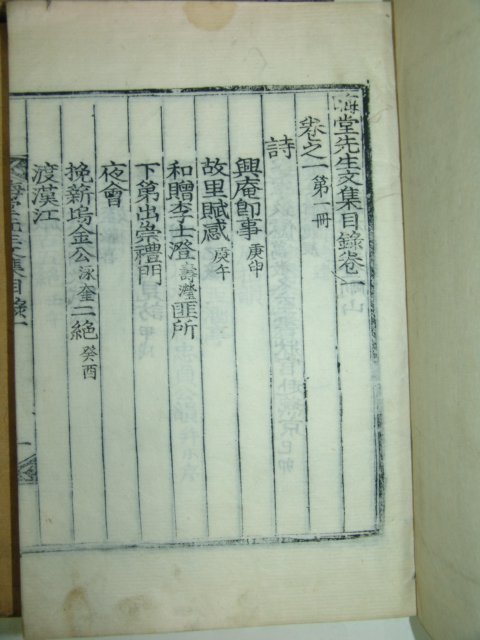 海堂先生文集目錄卷一
卷之一 第一冊
詩
興庵即事 庚申
故里賦感 庚午
和贈李士澄 壽瀅 匪所
下第出崇禮門
夜會
挽新塢金公 泳奎 二絶 癸酉
渡漢江